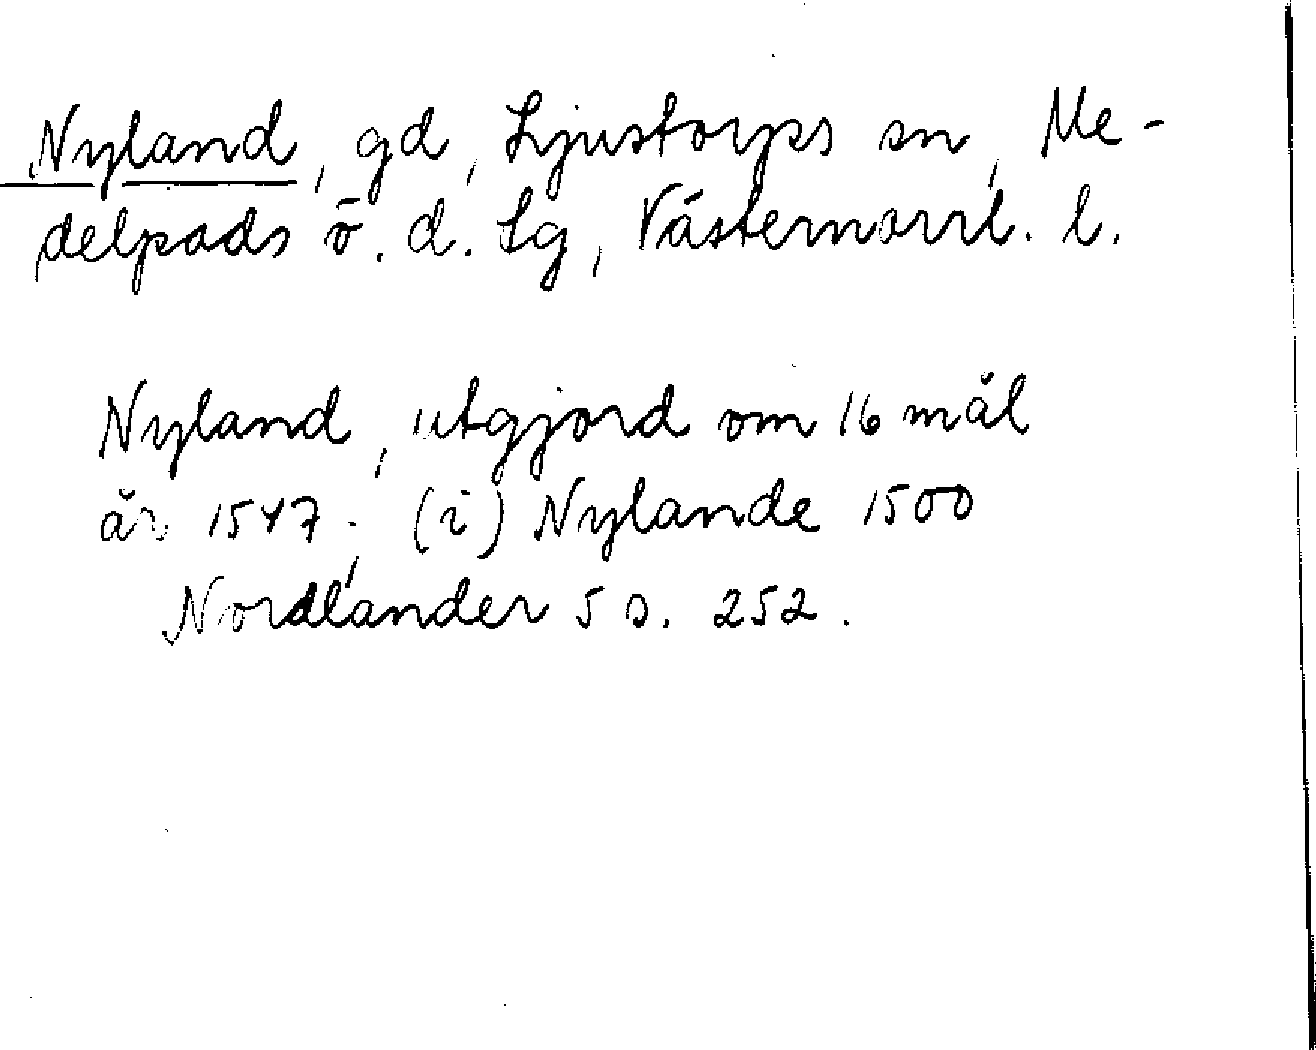 Nyland, gd, Ljustorps sn, Me-
delpads ö. d. lg, Västernorrl. l.
Nyland, utgjord om 16 mål
år 1547; (i) Nylande 1500
Nordlander 5 s. 252.